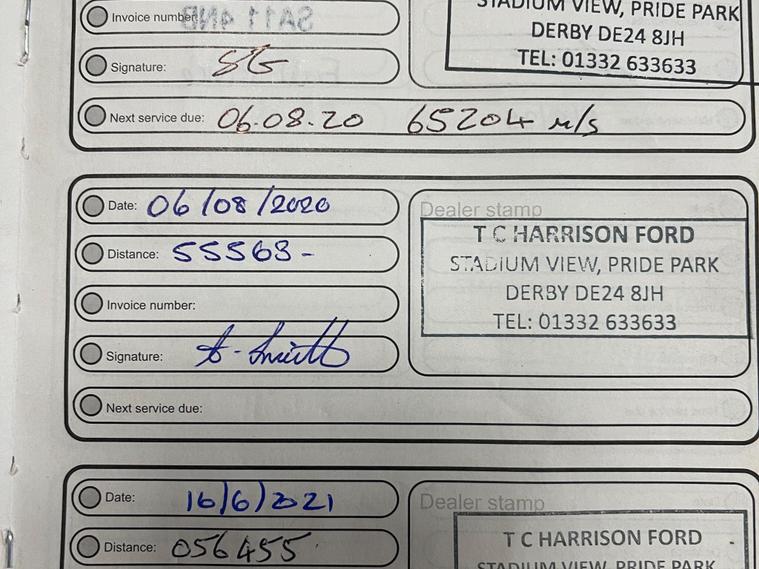 STADIUM VIEW, PRIDE PARK
Invoice number:
SA11 4NB
DERBY DE24 8JH
Signature: SG
TEL: 01332 633633
Next service due: 06.08.20 65204 m/s
Date: 06/08/2020
Dealer stamp
T C HARRISON FORD
Distance: 55563-
STADIUM VIEW, PRIDE PARK
DERBY DE24 8JH
Invoice number:
TEL: 01332 633633
Signature: A. Smith
Next service due:
Date: 16/6/2021
Dealer stamp
T C HARRISON FORD
Distance: 056455
STADIUM VIEW, PRIDE PARK